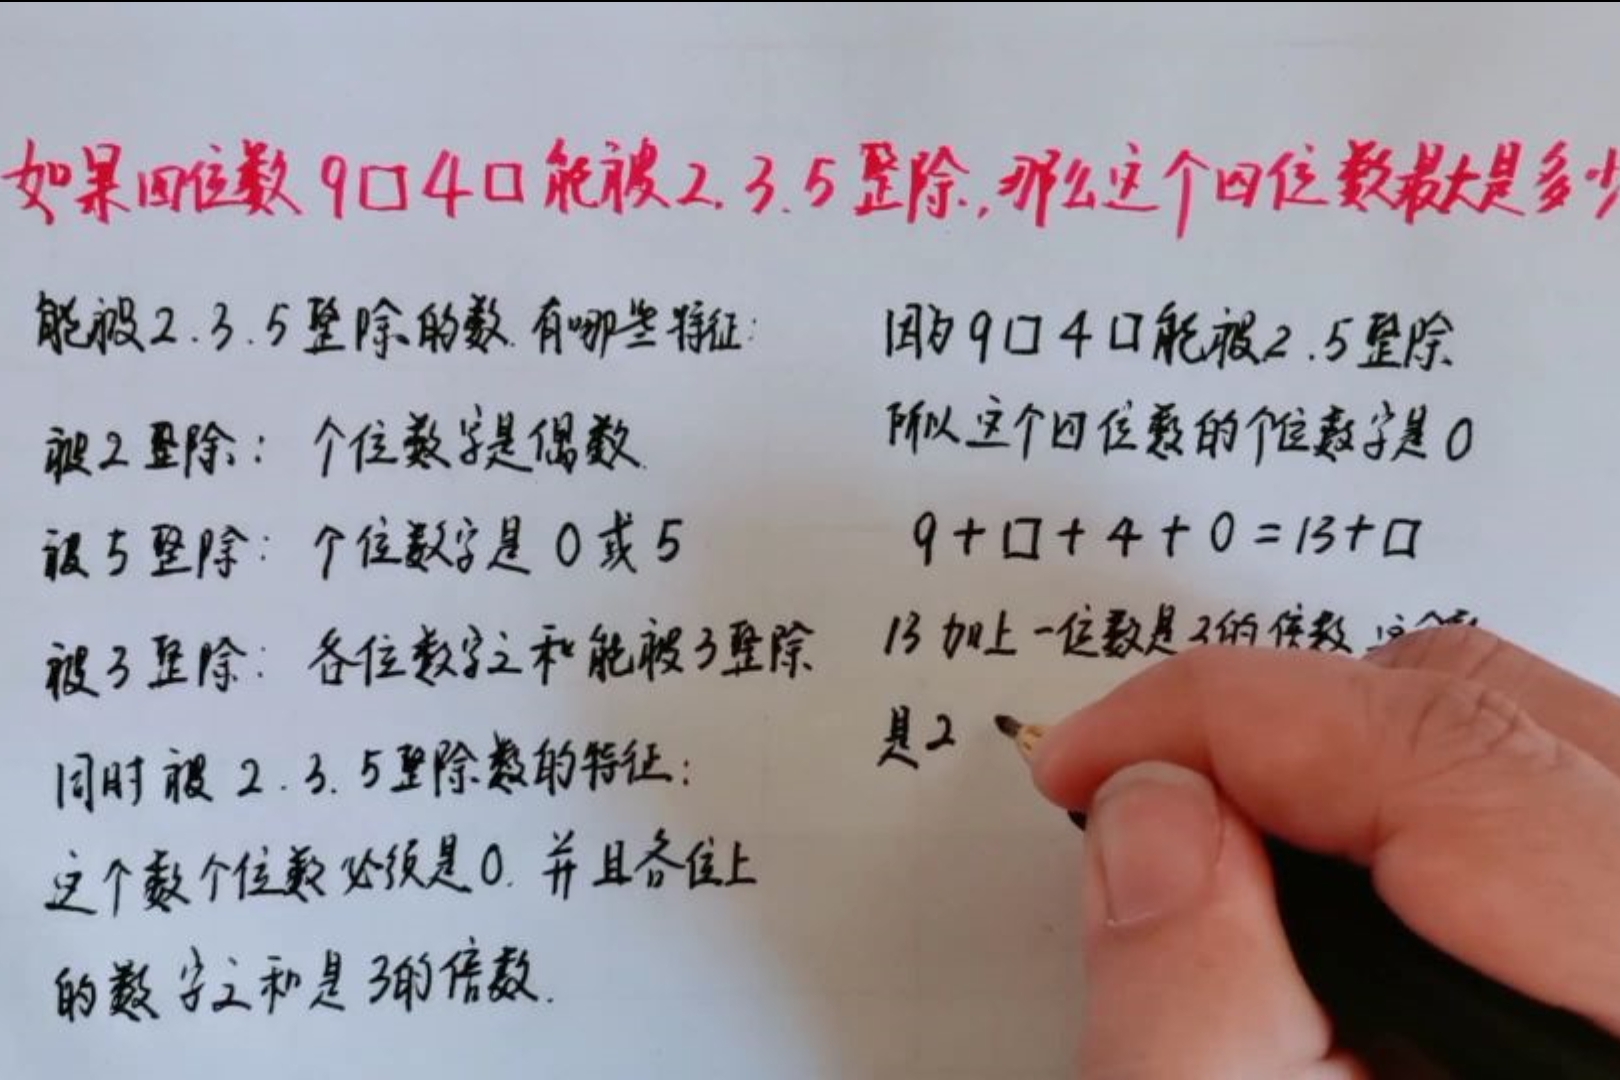 如果四位数9□4□能被2.3.5整除,那么这个四位数最大是多少
能被2.3.5整除的数.有哪些特征:
被2整除: 个位数字是偶数.
被5整除: 个位数字是0或5
被3整除: 各位数字之和能被3整除
同时被2.3.5整除数的特征:
这个数个位数必须是0.并且各位上
的数字之和是3的倍数.
因为9□4□能被2.5整除
所以这个四位数的个位数字是0
9+□+4+0=13+□
13加上一位数是3的倍数
是2